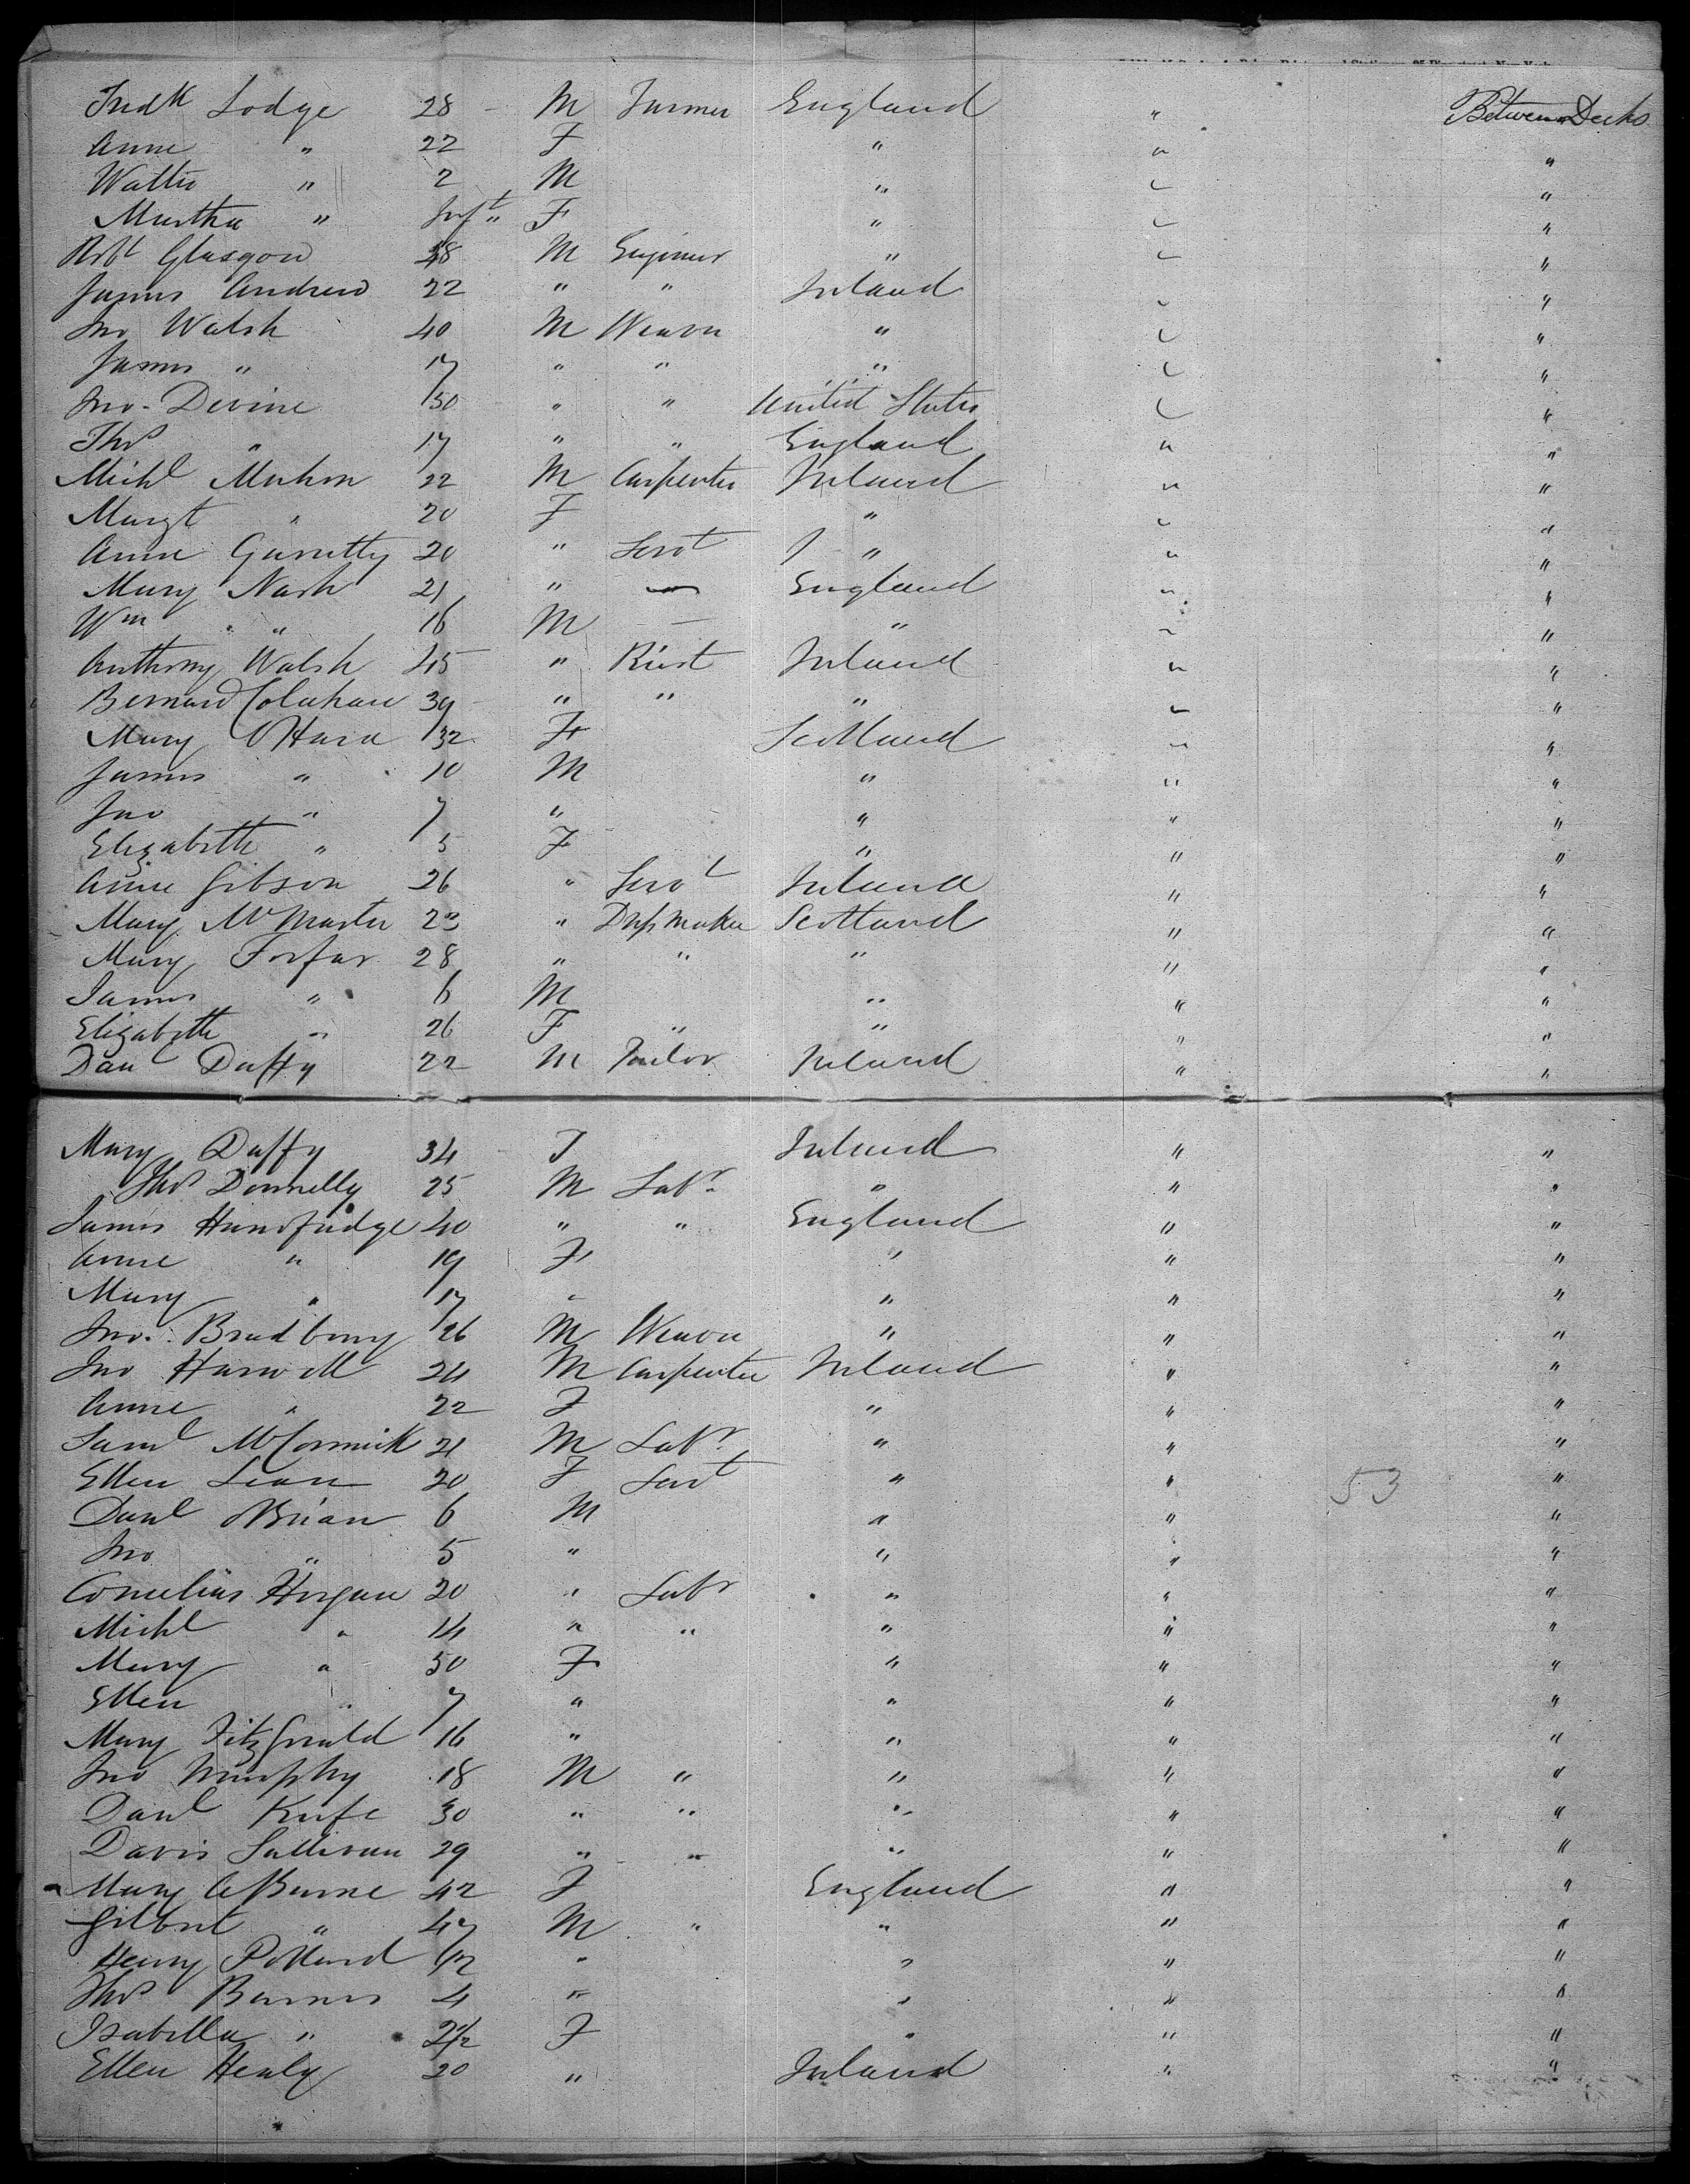 Fredk Lodge 28 M Farmer England " Between Decks
Anne " 22 F " " "
Walter " 2 M " " "
Martha " Inft " F " " "
Robt Glasgow 38 M Engineer " " "
James Andrew 22 " " Ireland " "
Jno Walsh 40 M Weaver " " "
James " 17 " " " " "
Jno. Devine 50 " " United States " "
Thos " 17 " " England " "
Michl Mahon 22 M Carpenter Ireland " "
Margt " 20 F " " "
Anne Garretty 20 " Servt " " "
Mary Nash 21 " — England " "
Wm " 16 M — " " "
Anthony Walsh 45 " Ireland " "
Bernard Colahan 39 " " " " "
Mary O'Hara 32 F Scotland " "
James " 10 M " " "
Jno " 7 " " " "
Elizabeth " 5 F " " "
Anne Gibson 26 " Servt Ireland " "
Mary McMaster 23 " Dressmaker Scotland " "
Mary Forfar 28 " " " " "
James " 6 M " " "
Elizabeth " 26 F " " " "
Danl Duffy 22 M Tailor Ireland " "
Mary Duffy 34 F Ireland " "
Thos Donnelly 25 M Labr " " "
James Handfudge 40 " " England " "
Anne " 19 F " " "
Mary " 17 " " " "
Jno. Bradbury 26 M Weaver " " "
Jno Harwell 24 M Carpenter Ireland " "
Anne " 22 F " " "
Saml McCormick 21 M Labr " " "
Ellen Lean 20 F Servt " " 53 "
Danl OBrian 6 M " " "
Jno " 5 " " " "
Cornelius Horgan 20 " Labr " " "
Michl " 14 " " " " "
Mary " 50 F " " "
Ellen " 7 " " " "
Mary FitzGerald 16 " " " "
Jno Murphy 18 M " " " "
Danl Keefe 30 " " " " "
Davis Sullivan 29 " " " " "
Mary 42 F England " "
Gilbert " 47 M " " " "
Henry Pollard " " " "
Thos Barnes 4 " " " "
Isabella " 2½ F " " "
Ellen Healy 20 " Ireland " "